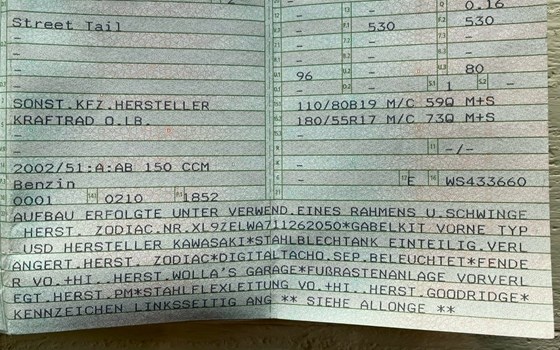 Q 0.16
Street Tail
530
530
80
96
1
SONST.KFZ.HERSTELLER
110/80B19 M/C 59Q M+S
KRAFTRAD O.LB.
180/55R17 M/C 73Q M+S
-/-
2002/51:A:AB 150 CCM
Benzin
E
WS433660
0001
0210
1852
AUFBAU ERFOLGTE UNTER VERWEND.EINES RAHMENS U.SCHWINGE
HERST. ZODIAC.NR.XL9ZELWA711262050*GABELKIT VORNE TYP
USD HERSTELLER KAWASAKI*STAHLBLECHTANK EINTEILIG.VERL
ANGERT.HERST. ZODIAC*DIGITALTACHO.SEP.BELEUCHTET*FENDE
R VO.+HI..HERST.WOLLA'S GARAGE*FUßRASTENANLAGE VORVERL
EGT.HERST.PM*STAHLFLEXLEITUNG VO.+HI..HERST.GOODRIDGE*
KENNZEICHEN LINKSSEITIG ANG ** SIEHE ALLONGE **